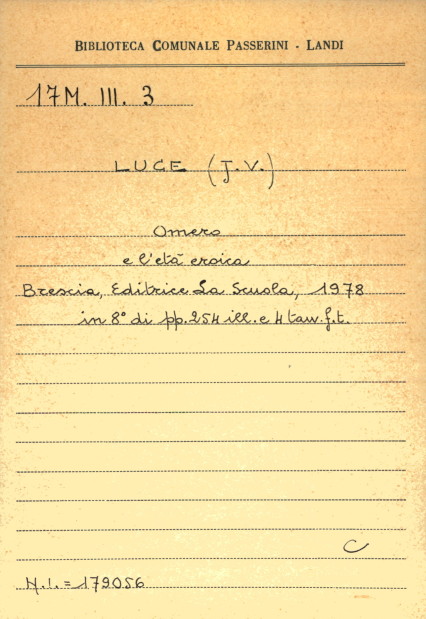 BIBLIOTECA COMUNALE PASSERINI - LANDI
17M. III. 3
LUCE (J.V.)
Omero
e l'età eroica
Brescia, Editrice La Scuola, 1978
in 8° di pp. 254 ill. e 4 tav. f.t.
C
N.I. = 179056